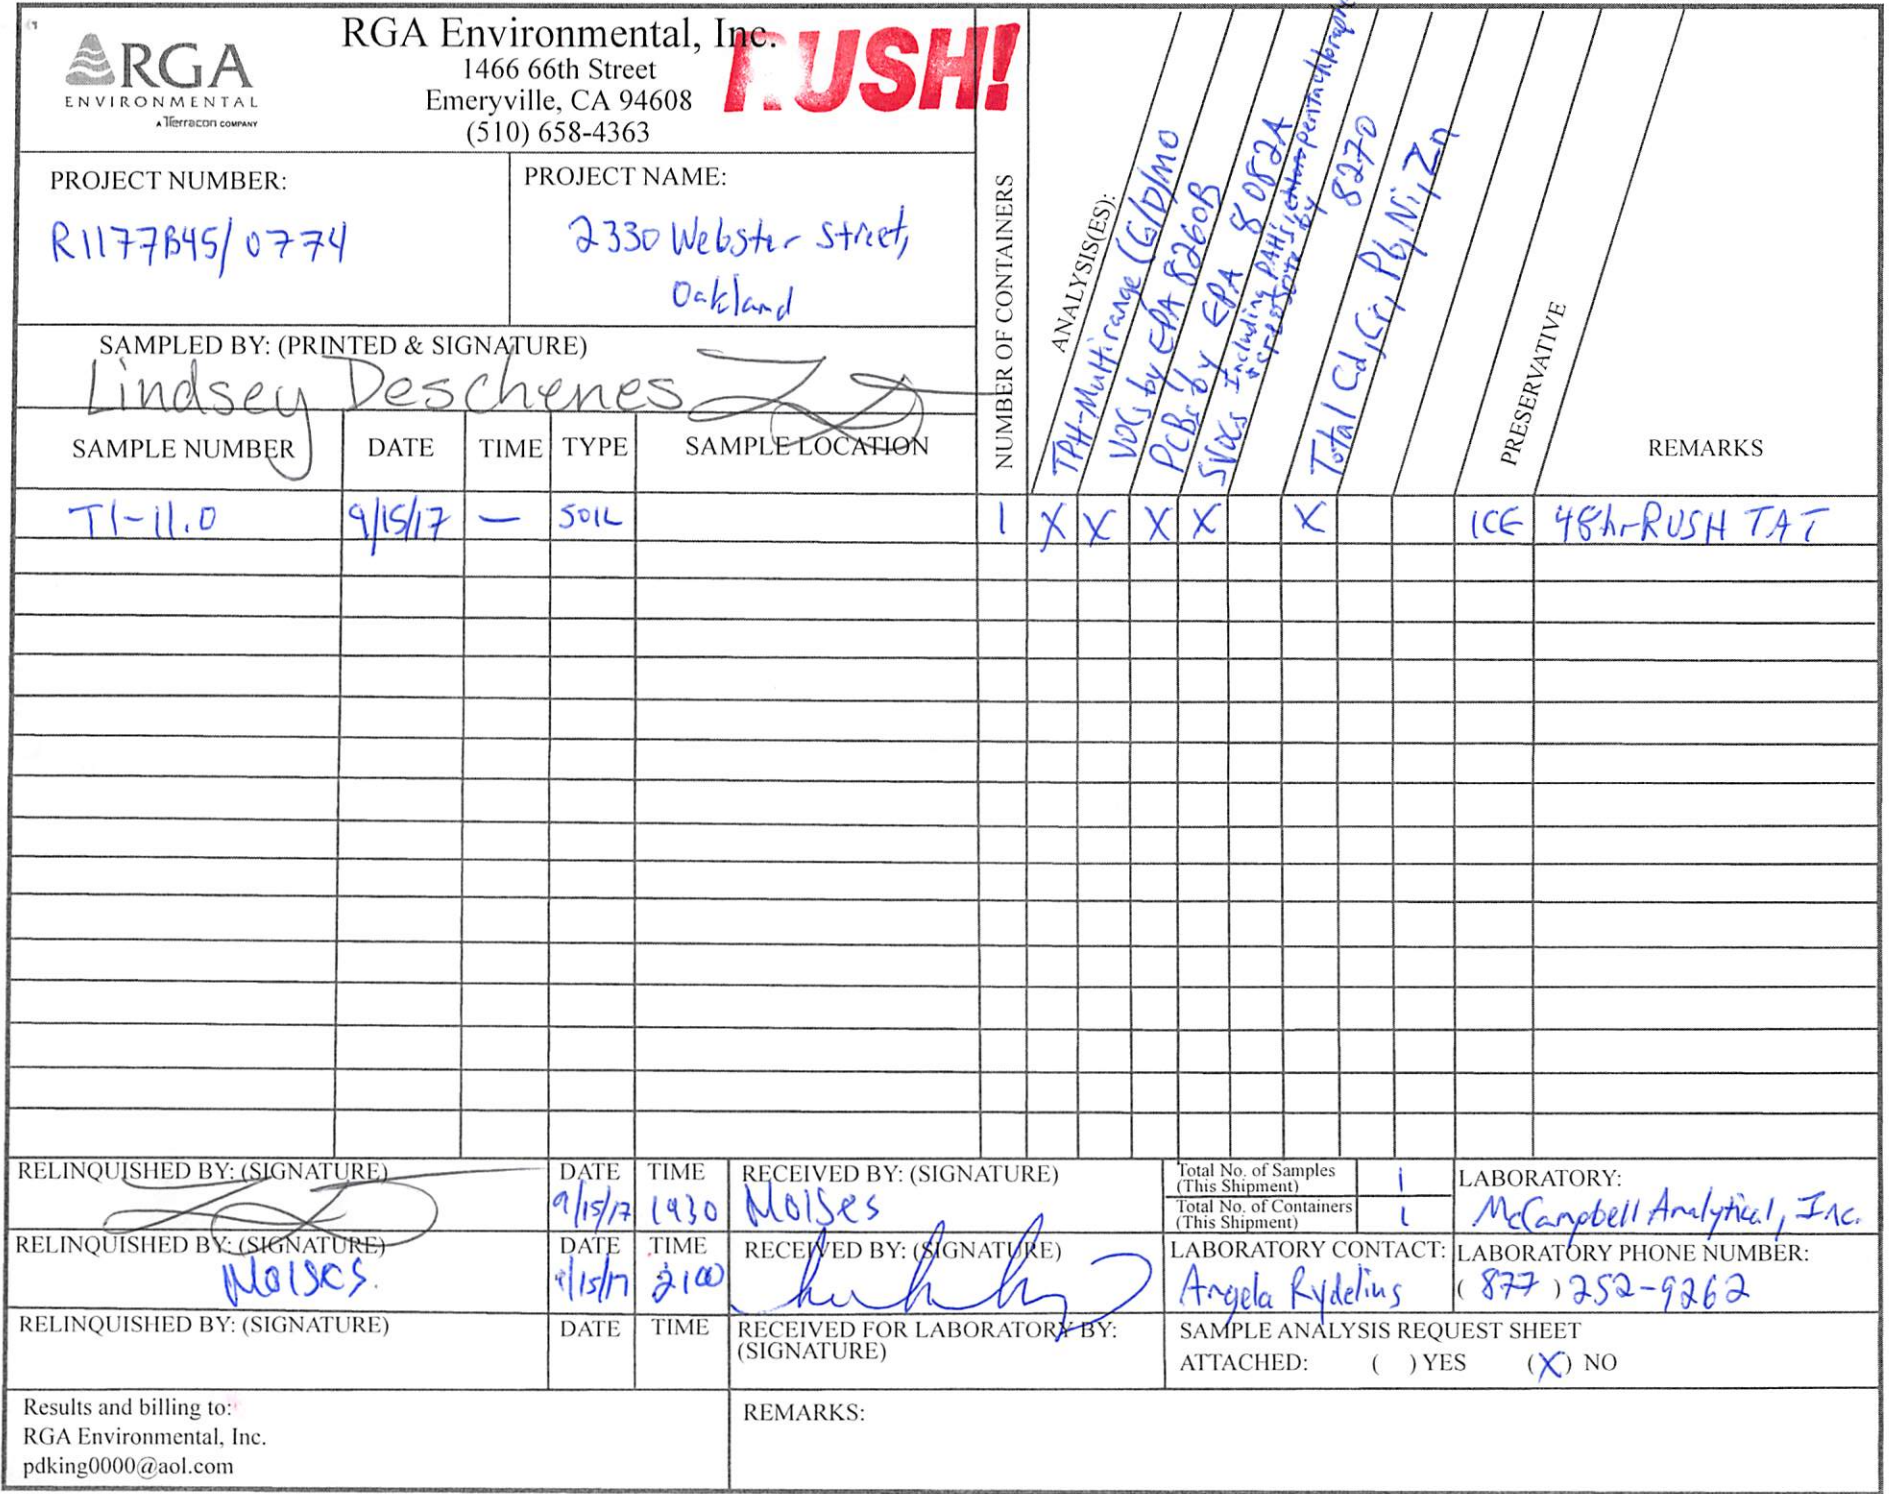 RGA
ENVIRONMENTAL
A Terracon COMPANY
RGA Environmental, Inc.
1466 66th Street
Emeryville, CA 94608
(510) 658-4363
RUSH!
PROJECT NUMBER:
R1177B45/0774
PROJECT NAME:
2330 Webster Street,
Oakland
SAMPLED BY: (PRINTED & SIGNATURE)
Lindsey Deschenes
NUMBER OF CONTAINERS
ANALYSIS(ES):
TPH-Multirange (G/D/MO
VOCs by EPA 8260B
PCBs by EPA 8082A
SVOCs Including PAHs, pentachlorophenol
by 8270
Total Cd, Cr, Pb, Ni, Zn
PRESERVATIVE
REMARKS
SAMPLE NUMBER DATE TIME TYPE SAMPLE LOCATION
T1-11.0 9/15/17 — SOIL 1 X X X X X ICE 48hr RUSH TAT
RELINQUISHED BY: (SIGNATURE) DATE TIME RECEIVED BY: (SIGNATURE)
9/15/17 1930 Moises
Total No. of Samples
(This Shipment) 1
Total No. of Containers
(This Shipment) 1
LABORATORY:
McCampbell Analytical, Inc.
RELINQUISHED BY: (SIGNATURE) DATE TIME RECEIVED BY: (SIGNATURE)
Moises. 9/15/17 2100
LABORATORY CONTACT:
Angela Rydelius
LABORATORY PHONE NUMBER:
(877) 252-9262
RELINQUISHED BY: (SIGNATURE) DATE TIME RECEIVED FOR LABORATORY BY:
(SIGNATURE)
SAMPLE ANALYSIS REQUEST SHEET
ATTACHED: ( ) YES (X) NO
Results and billing to:
RGA Environmental, Inc.
pdking0000@aol.com
REMARKS: